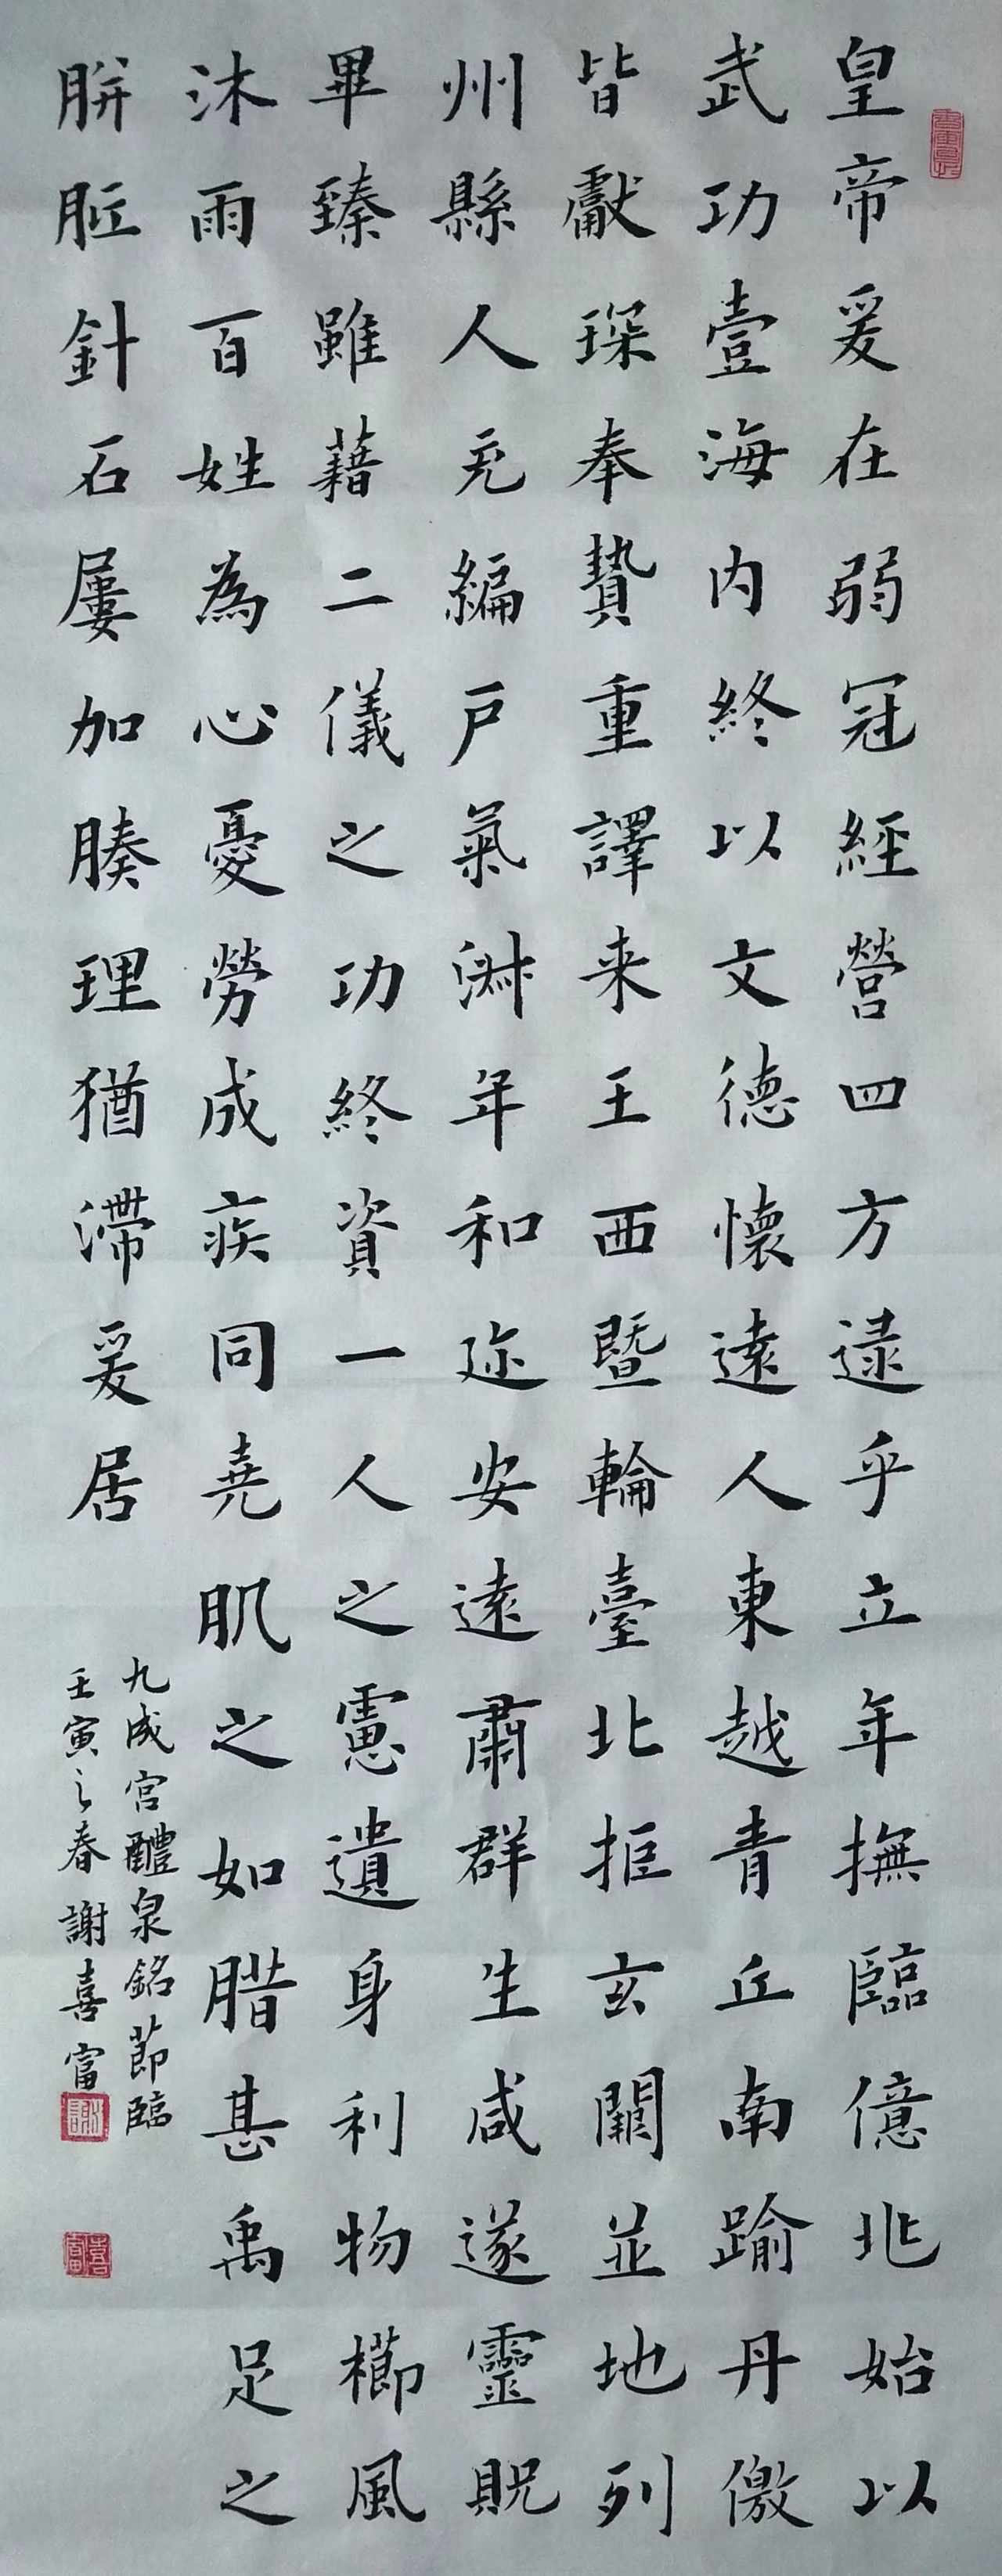 皇帝爰在弱冠經營四方逯乎立年撫臨億兆始以
武功壹海内終以文德懷遠人東越青丘南踰丹儌
皆獻琛奉贄重譯来王西暨輪臺北拒玄闕並地列
州縣人充編戶氣淑年和迩安遠肅群生咸遂靈貺
畢臻雖藉二儀之功終資一人之慮遺身利物櫛風
沐雨百姓為心憂勞成疾同堯肌之如腊甚禹足之
胼胝針石屢加腠理猶滯爰居
九成宮醴泉銘節臨
壬寅之春謝喜富
謝
喜富